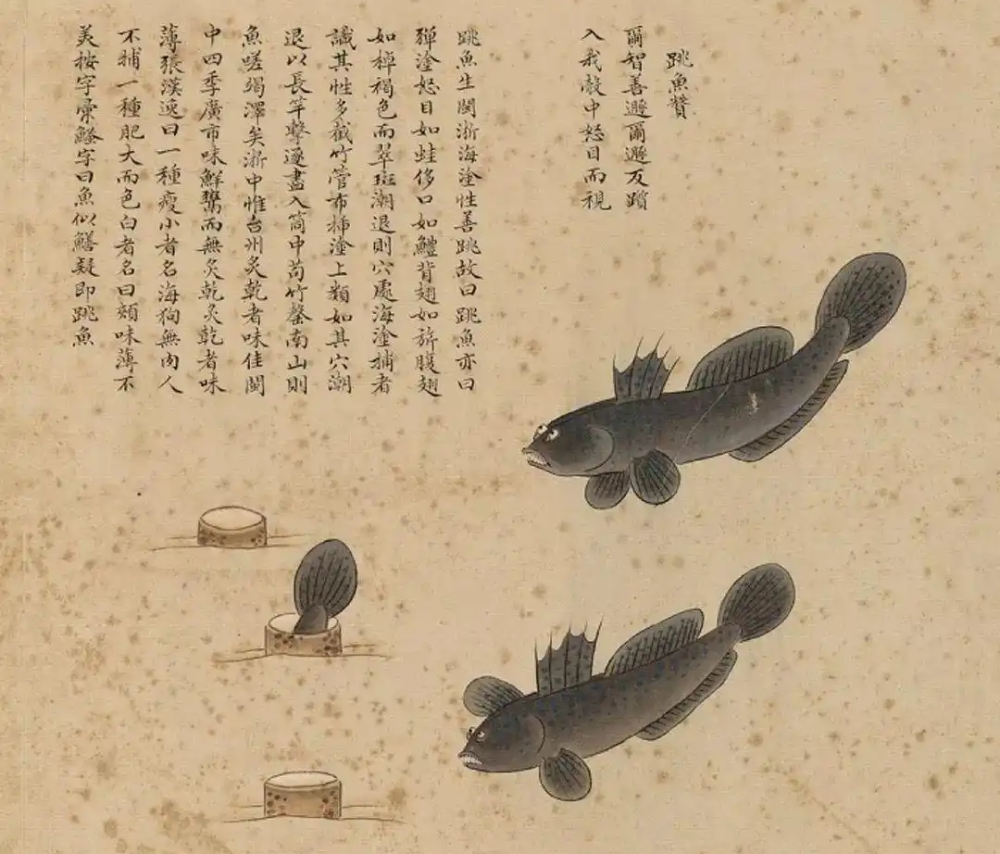 跳魚贊
爾智善遯爾遯反躓
入我彀中怒目而視
跳魚生閩浙海塗性善跳故曰跳魚亦曰
彈塗怒目如蛙侈口如鱧背翅如旂腹翅
如棹褐色而翠斑潮退則穴處海塗捕者
識其性多截竹管布揷塗上類如其穴潮
退以長竿擊逐盡入筒中苟竹罄南山則
魚嗟竭澤矣浙中惟台州炙乾者味佳閩
中四季廣市味鮮而無炙乾炙乾者味
薄張漢逸曰一種瘦小者名海狗無肉人
不捕一種肥大而色白者名曰頰味薄不
美按字彚字曰魚似鱔疑即跳魚